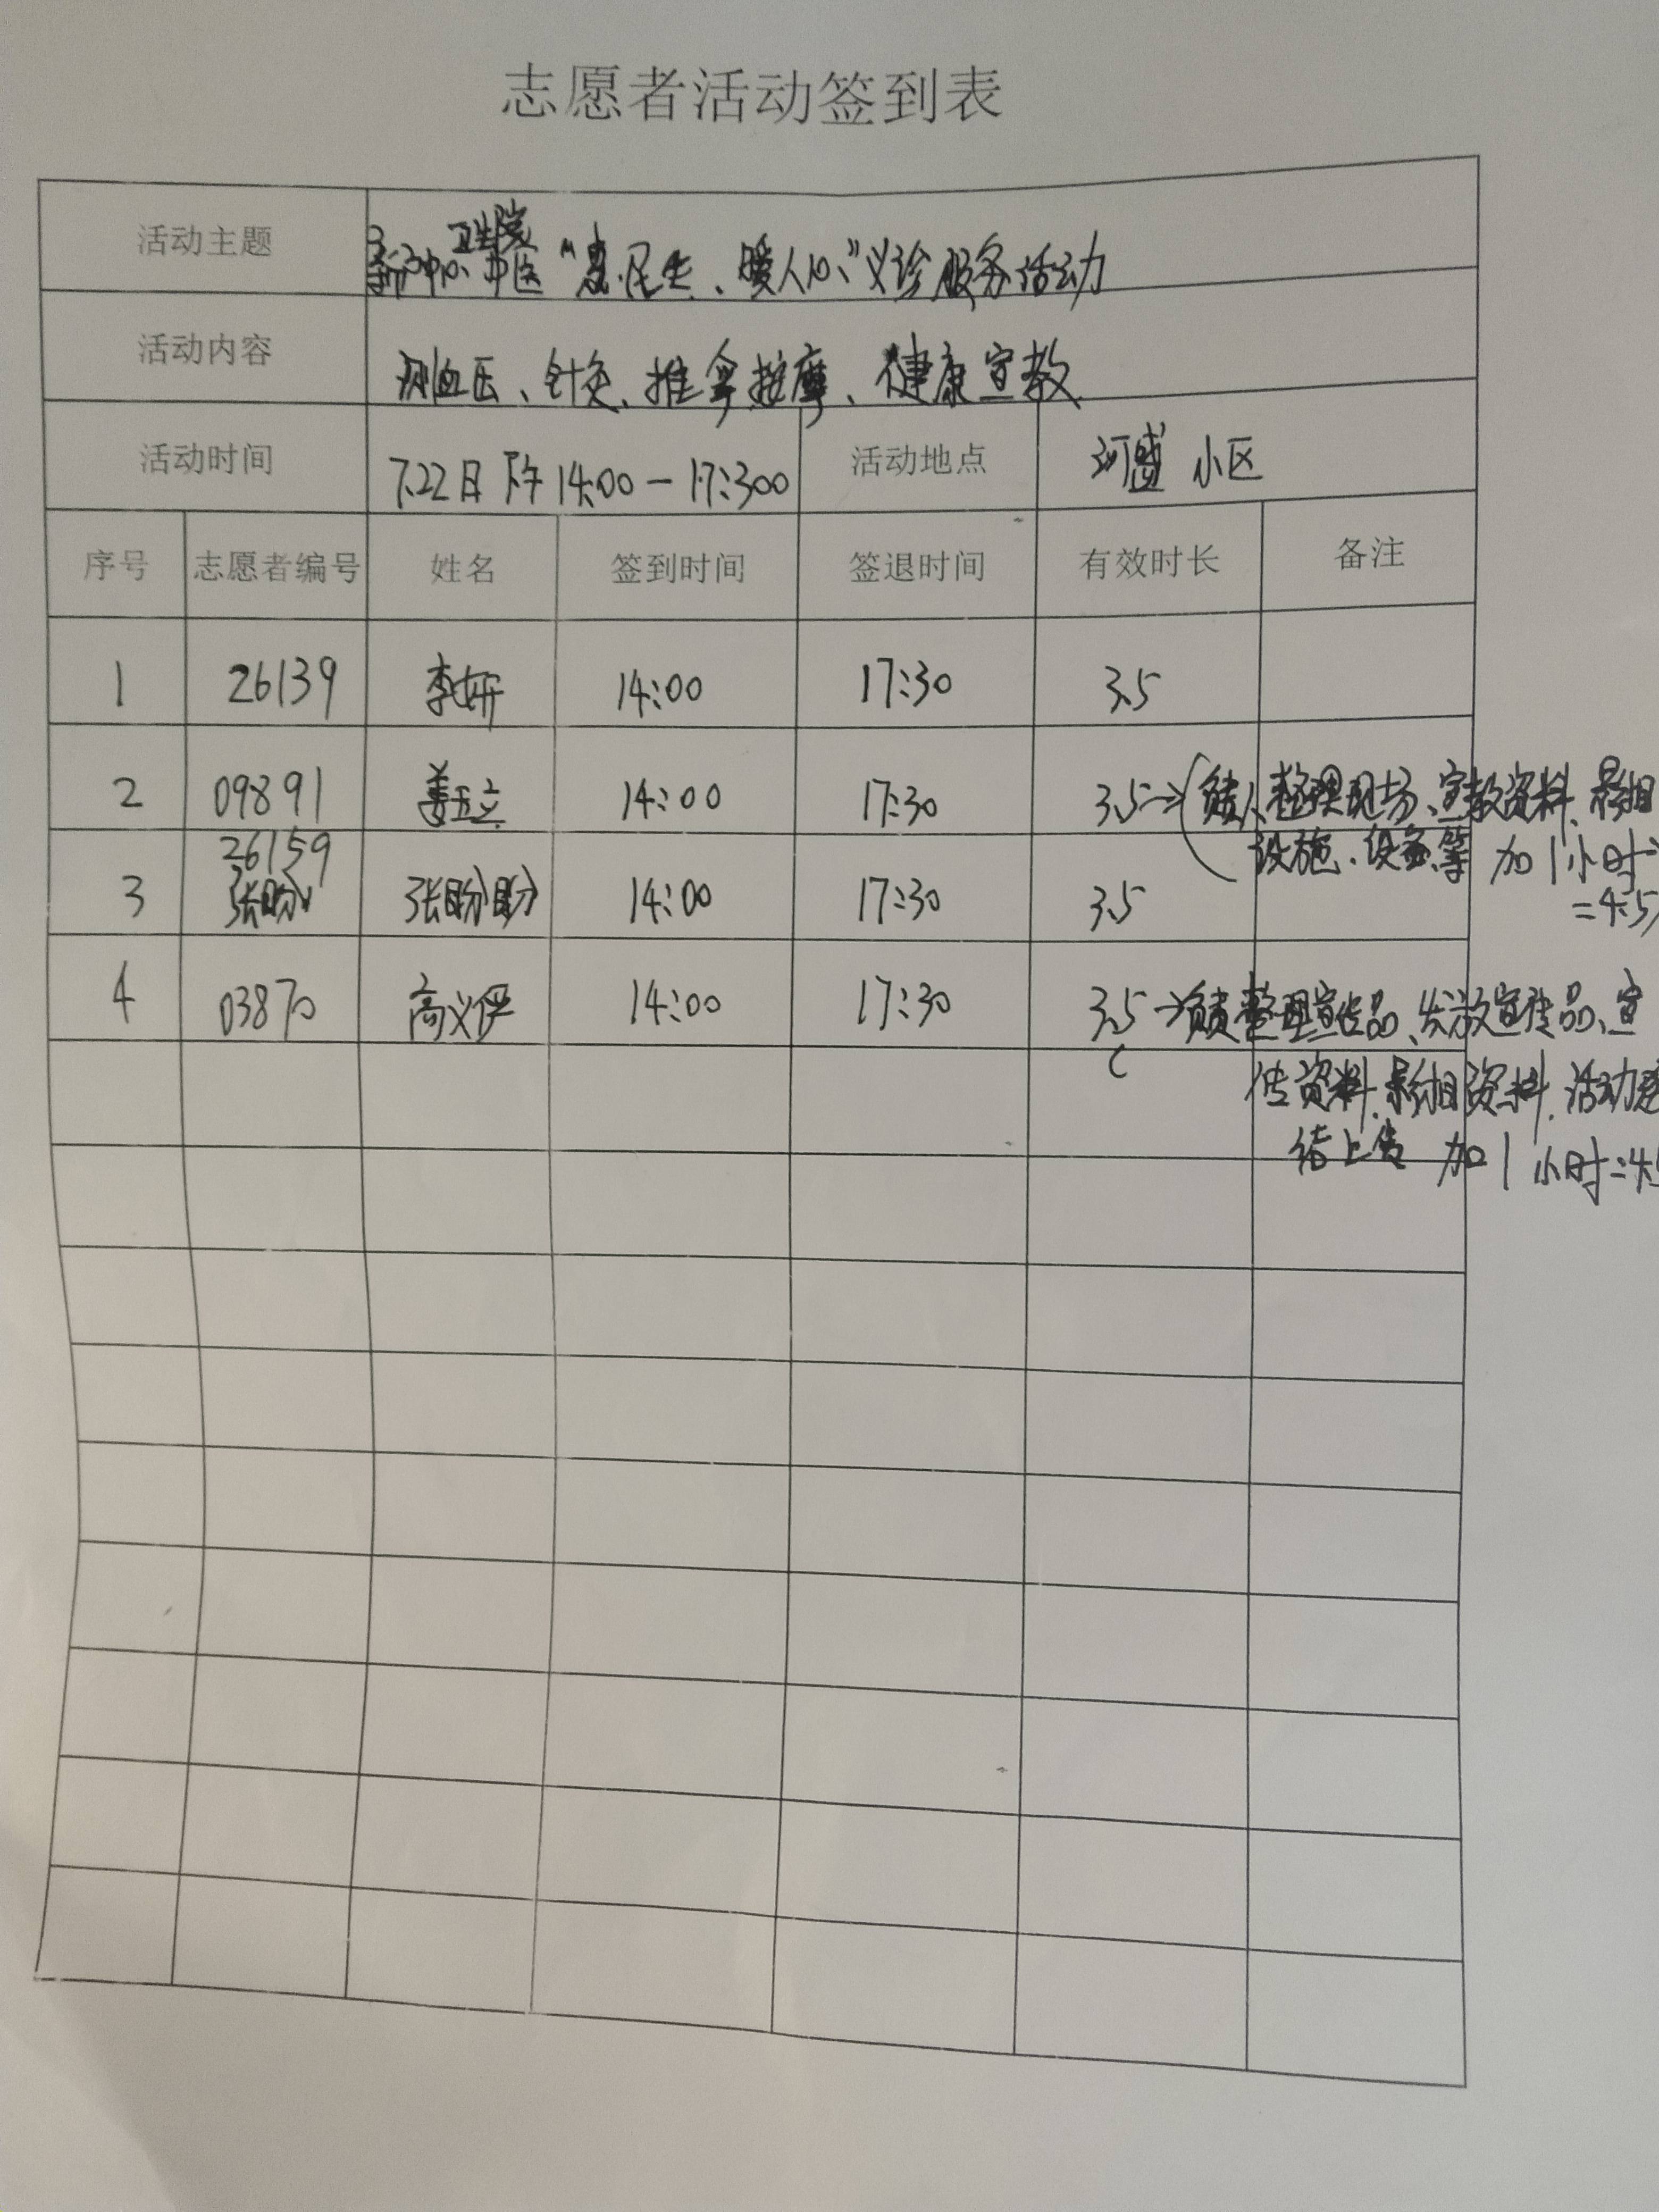 志愿者活动签到表
活动主题
卫生院
中医“惠民生、暖人心”义诊服务活动
活动内容 测血压、针灸、推拿按摩、健康宣教
活动时间 7.22日下午14:00-17:300 活动地点 河盛 小区
序号 志愿者编号 姓名 签到时间 签退时间 有效时长 备注
1 26139 李妍 14:00 17:30 3.5
2 09891 姜玉立 14:00 17:30 3.5→(负责人整理现场、宣教资料、影相
设施、设备等 加1小时
26159
3 张盼 张盼盼 14:00 17:30 3.5 =4.5
4 03870 高义伊 14:00 17:30 3.5→负责整理宣传品、发放宣传品、宣
传资料、影相资料、活动
结上传 加1小时=4.5